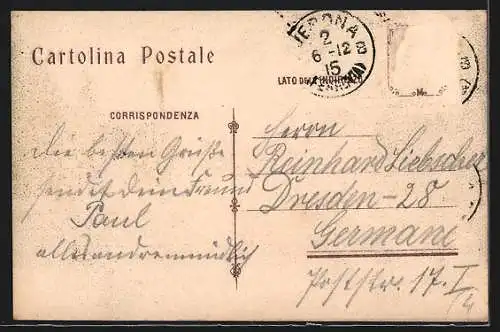 Cartolina Postale
VERONA
2
6-12
15
8
(FERROVIA)
LATO DELL'INDIRIZZO
CORRISPONDENZA
Die besten Grüße
sendet dein Freund
Paul
alles andre mündlich
Herrn
Reinhard Liebscher
Dresden-28
Germane
Poststr. 17. I